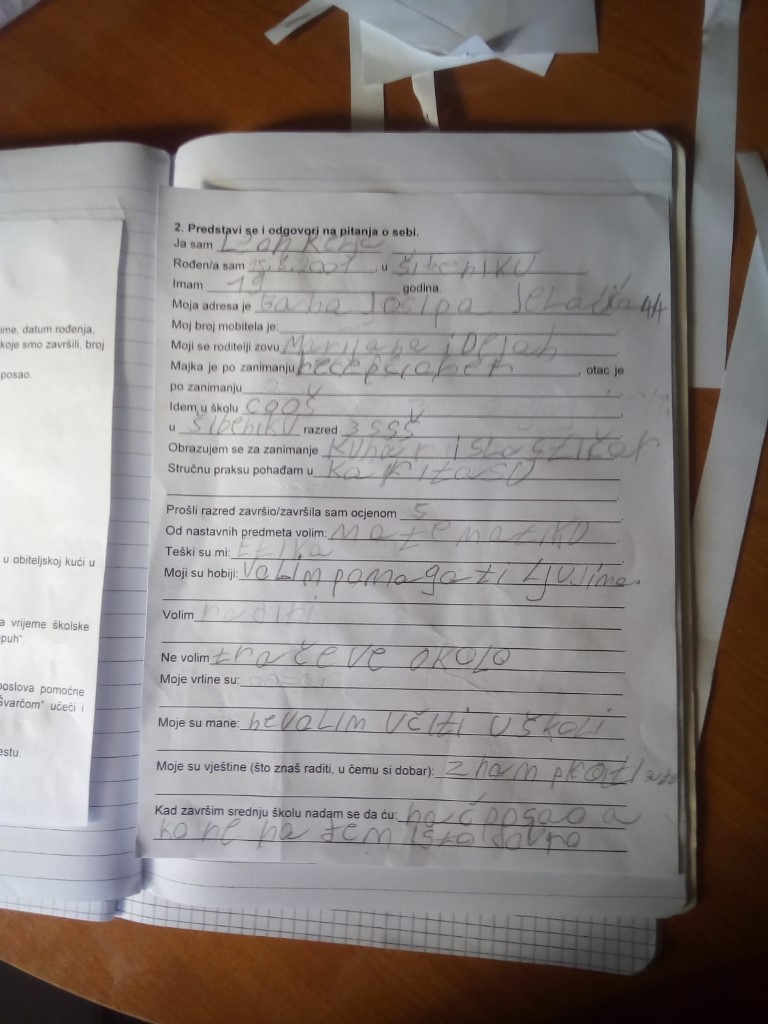 ime, datum rođenja,
koje smo završili, broj
posao.
u obiteljskoj kući u
a vrijeme školske
puh".
poslova pomoćne
Švarčom" učeći i
estu.
2. Predstavi se i odgovori na pitanja o sebi.
Ja sam
Rođen/a sam 15.8.2007 , u Šibeniku
Imam 19 godina.
Moja adresa je Bana Josipa Jelačića 44
Moj broj mobitela je:
Moji se roditelji zovu Marijana i Dejan
Majka je po zanimanju , otac je
po zanimanju
Idem u školu COOŠ
u Šibeniku razred 3 SSŠ
Obrazujem se za zanimanje kuhar i slastičar
Stručnu praksu pohađam u karitasu
Prošli razred završio/završila sam ocjenom 5
Od nastavnih predmeta volim: matematiku
Teški su mi: Etika
Moji su hobiji: Volim pomagati
Volim raditi
Ne volim tračeve okolo
Moje vrline su:
Moje su mane: nevolim učiti u školi
Moje su vještine (što znaš raditi, u čemu si dobar): znam
Kad završim srednju školu nadam se da ću: nać posao a
ko ne nađem isto dobro